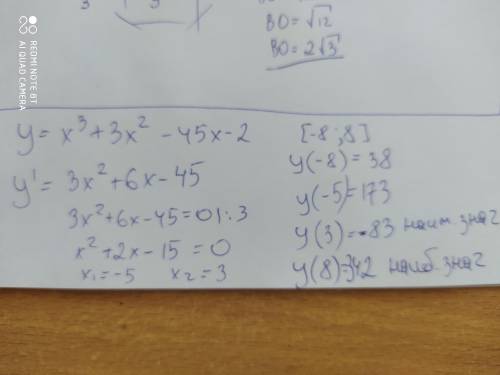 3 3
BO = √12
BO = 2√3
REDMI NOTE 8T
AI QUAD CAMERA
y = x³ + 3x² - 45x - 2
y' = 3x² + 6x - 45
3x² + 6x - 45 = 0 | : 3
x² + 2x - 15 = 0
x₁ = -5 x₂ = 3
[-8; 8]
y(-8) = 38
y(-5) = 173
y(3) = -83 наим. знач
y(8) = 342 наиб. знач